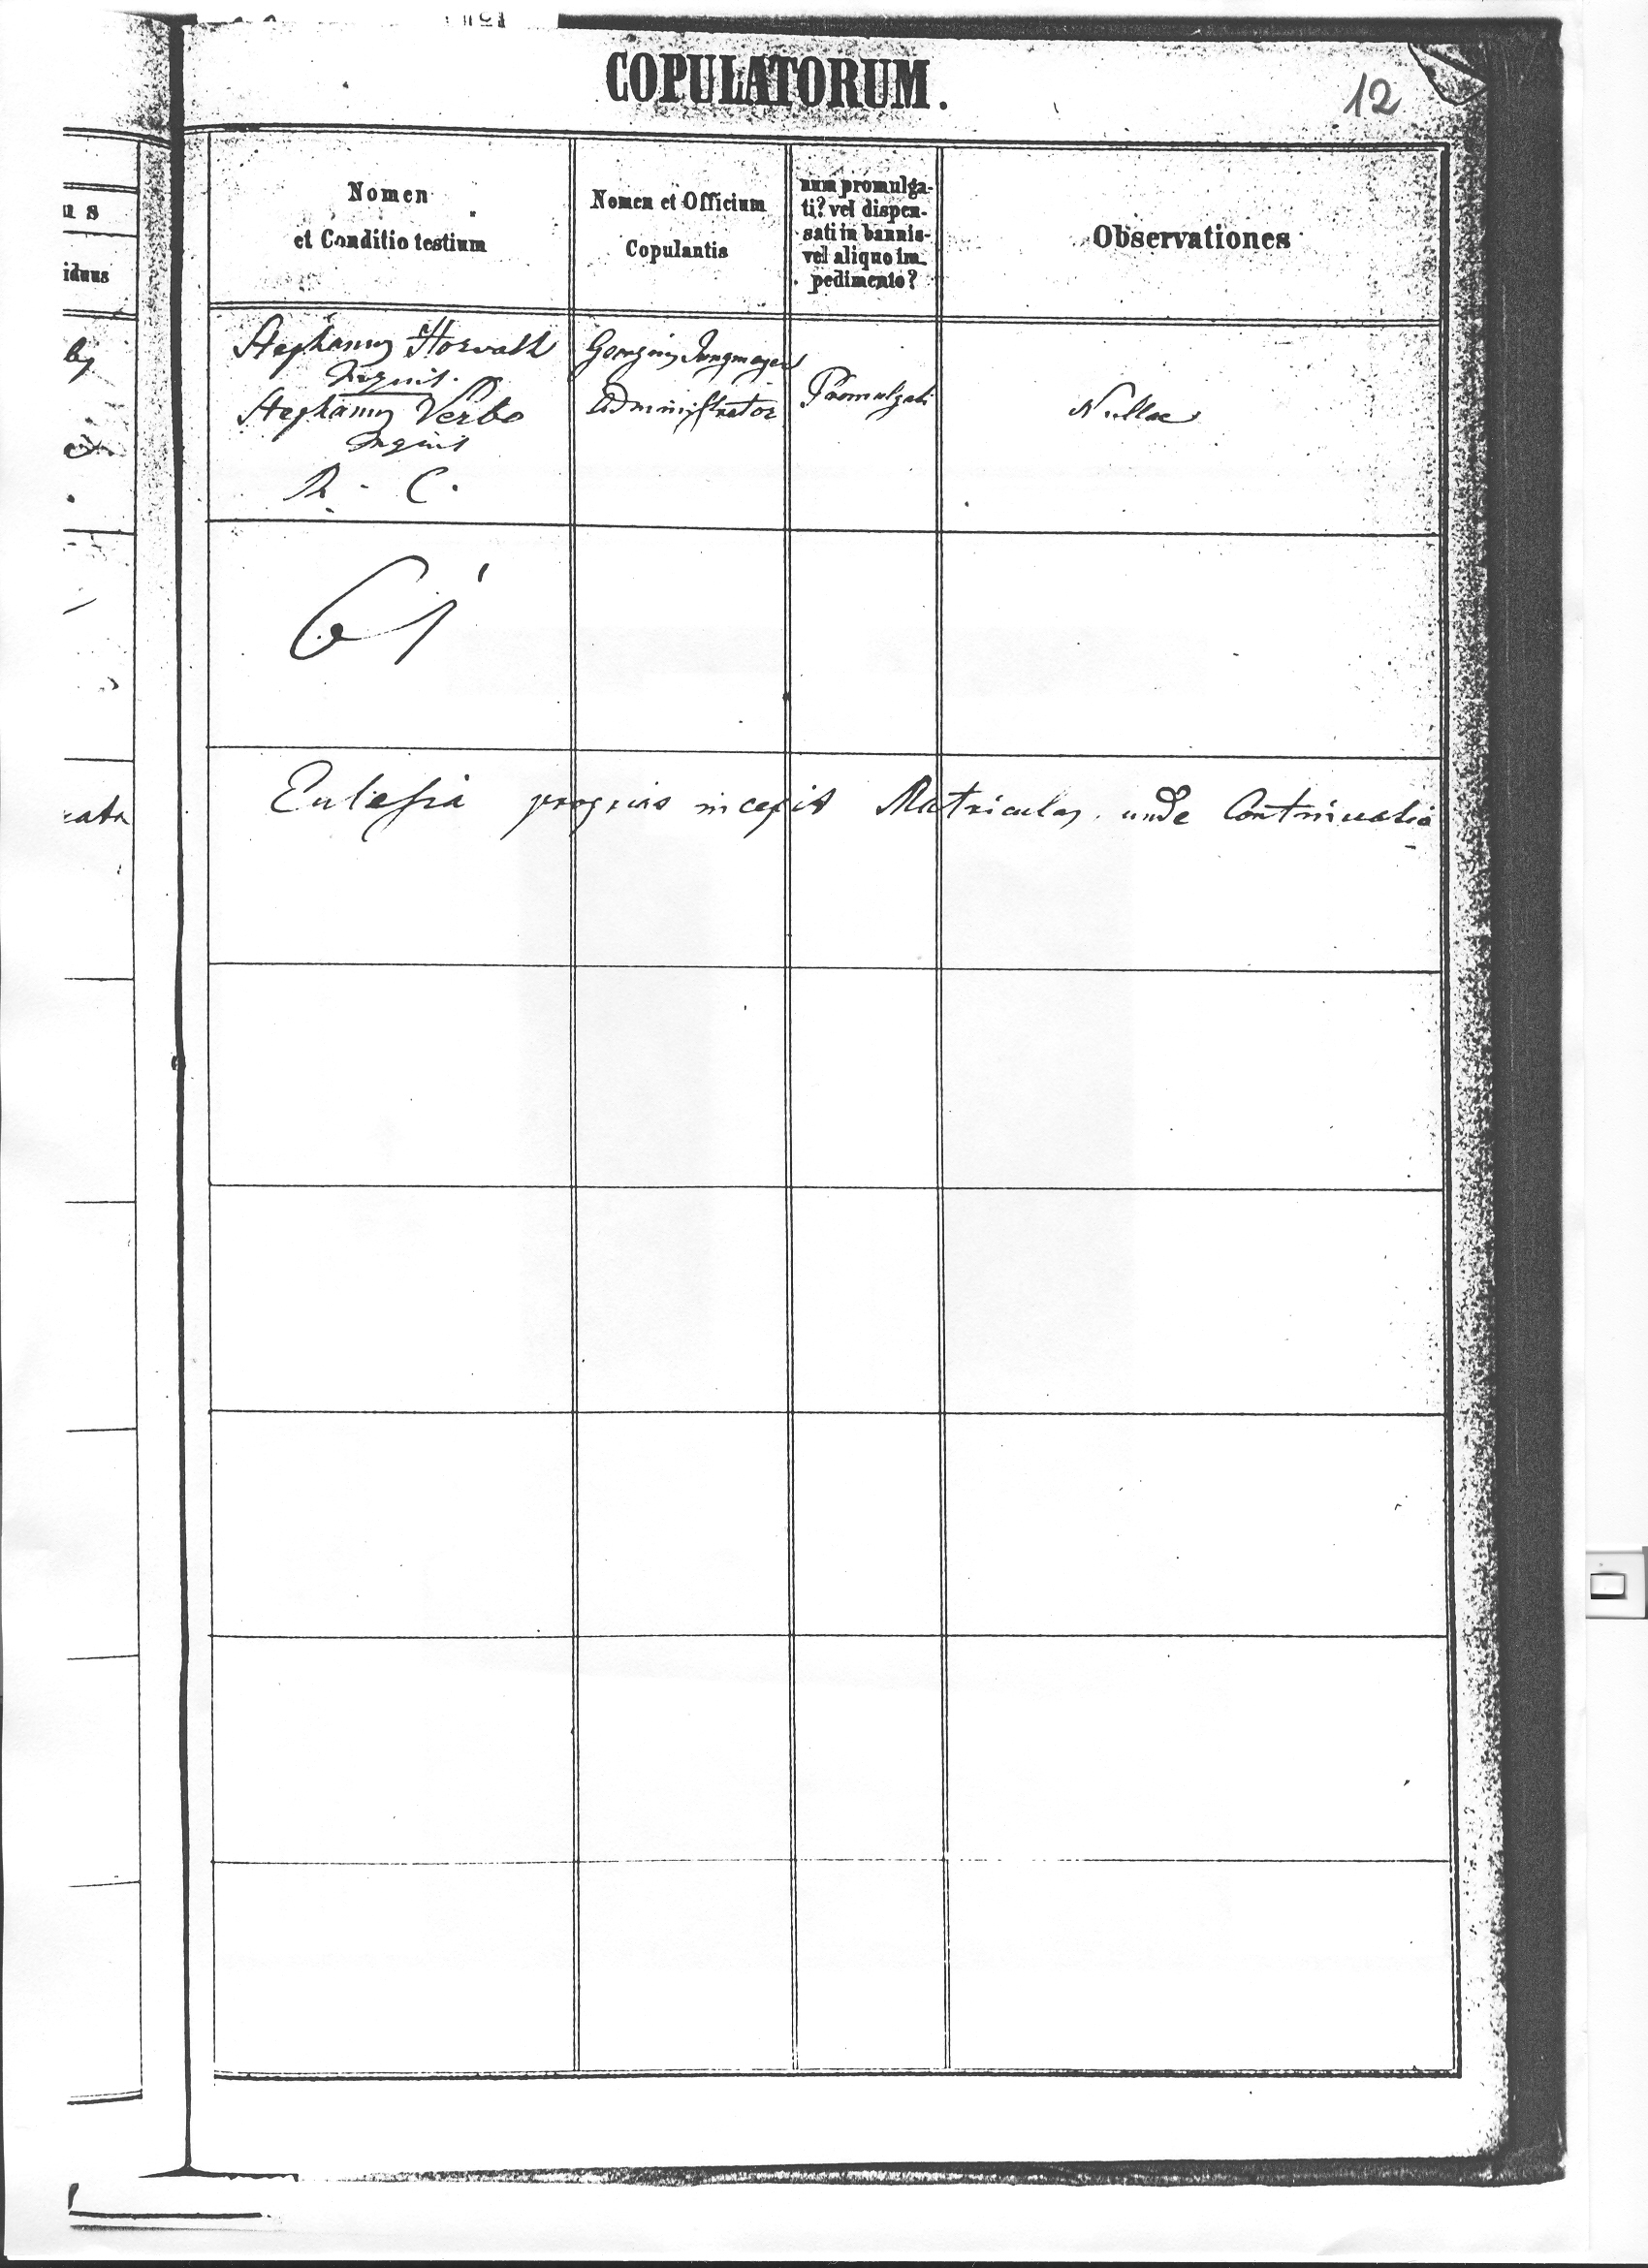 COPULATORUM.
12
Nomen
et Conditio testium
Nomen et Officium
Copulantis
num promulga-
ti? vel dispen-
sati in bannis
vel aliquo im-
pedimento?
Observationes
n s
iduus
Stephanus Horvath
Inquis.
Stephanus Verbo
Inquis
R. C.
Georgius Jungmayer
Administrator
Promulgati
Nullae
61
Eulesia proprias incepit Matriculas unde Continuatio